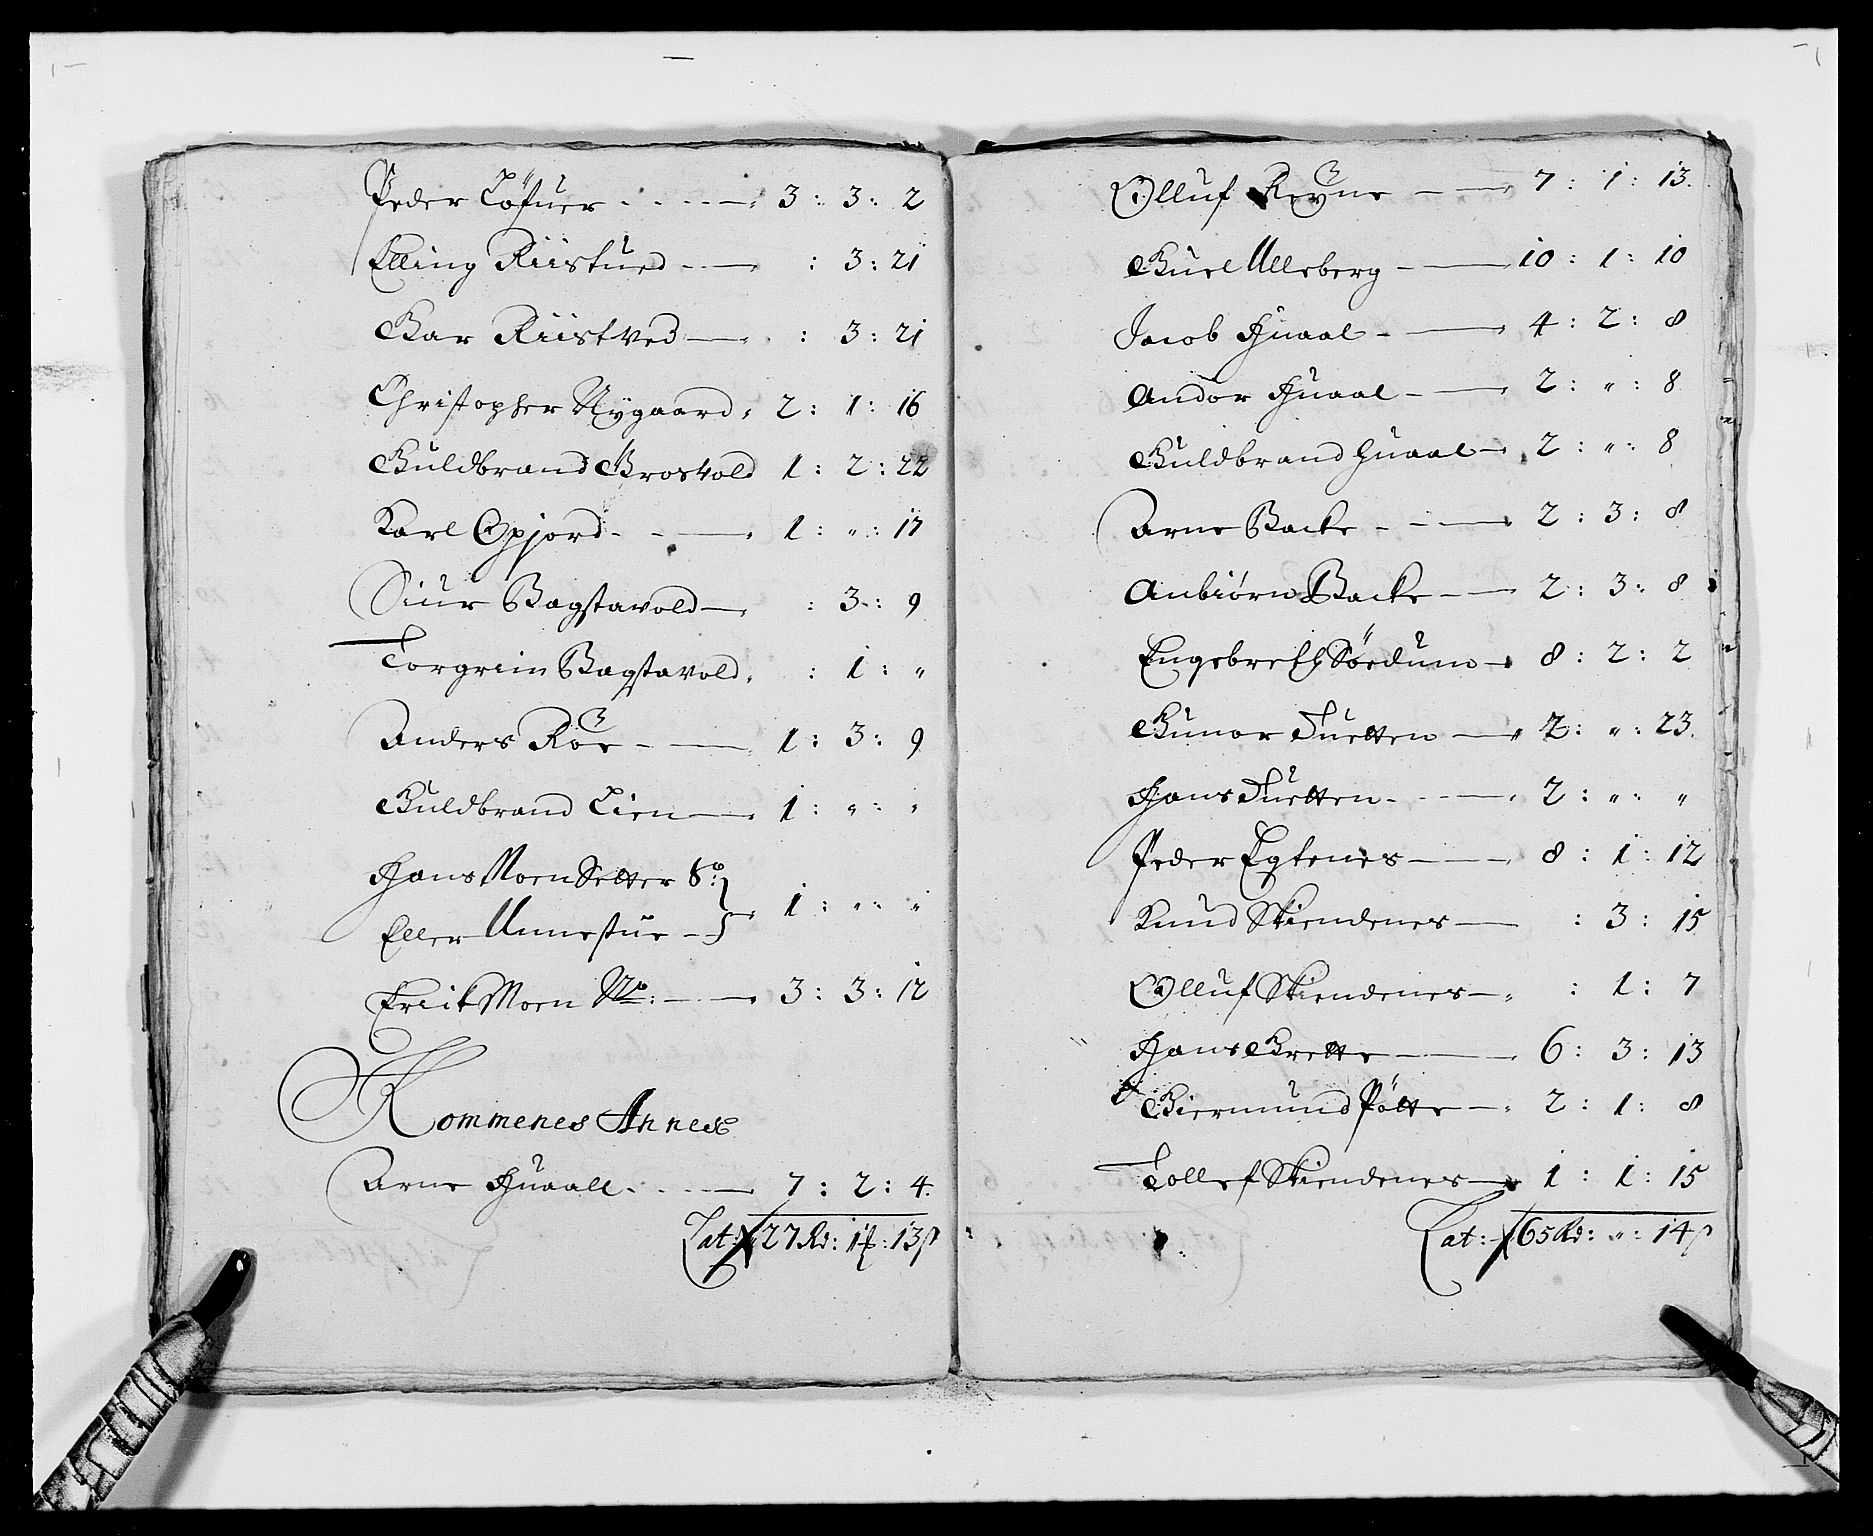 Peder Löfuer - - - - 3 : 3 : 2
Elling Riistued - - : 3 : 21
Gar Riistved — : 3 : 21
Christopher Nygaard, 2 : 1 : 16
Guldbrand Brosvold 1 : 2 : 22
Karl Opjord - - — 1 : " : 17
Siur Bagstavold — : 3 : 9
Torgrim Bagstavold, : 1 : "
Anders Röe - — 1 : 3 : 9
Guldbrand Lien — 1 : " : "
Hans Moen Setter
Eller Unnestue - } 1 : " : "
Erik Moen No: - — 3 : 3 : 12
Rommenes Annex
Arne Huaall - - — 7 : 2 : 4
Lat: 27 Rd: 1 f: 13 s
Olluf Reyne - — 7 : 1 : 13.
Guel Ullsberg - — 10 : 1 : 10
Jacob Huaal - — 4 : 2 : 8
Andor Huaal - — 2 : " : 8
Guldbrand Huaal — 2 : " : 8
Arne Backe - - — 2 : 3 : 8
Anbiørn Backe - — 2 : 3 : 8
Engebreth Sördum — 8 : 2 : 2
Gunor Tuetten — 2 : " : 23.
Hans Tuetten - - — 2 : " : "
Peder Egtenes - — 8 : 1 : 12
Knud Skiendenes — : 3 : 15
Olluf Skiendenes — : 1 : 7
Hans Grette - — 6 : 3 : 13
Giermund Pötte — 2 : 1 : 8
Tollef Skiendenes — 1 : 1 : 15
Lat: 65 Rd: " : 14 s